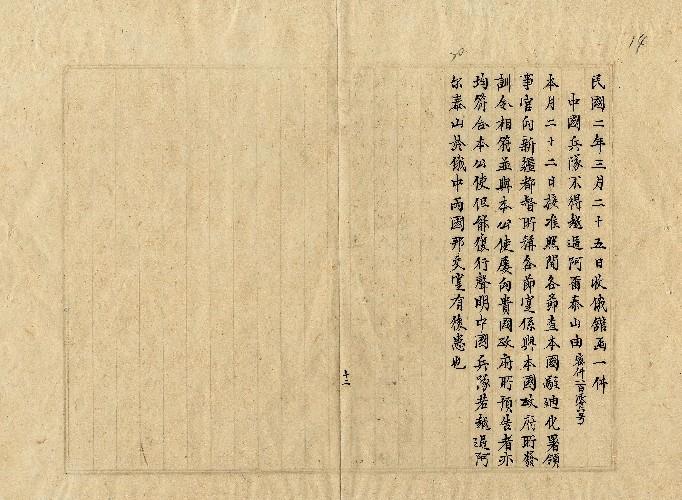 民國二年三月二十五日收俄館函一件
中國兵隊不得越過阿爾泰山由
本月二十二日接准照開各節查本國駐迪化署領
事官向新疆都督所稱各節實係與本國政府所發
訓令相符並與本公使屢向貴國政府所預告者亦
均符合本公使但能復行聲明中國兵隊若越過阿
尔泰山於俄中兩國邦交實有後患也
十二
14